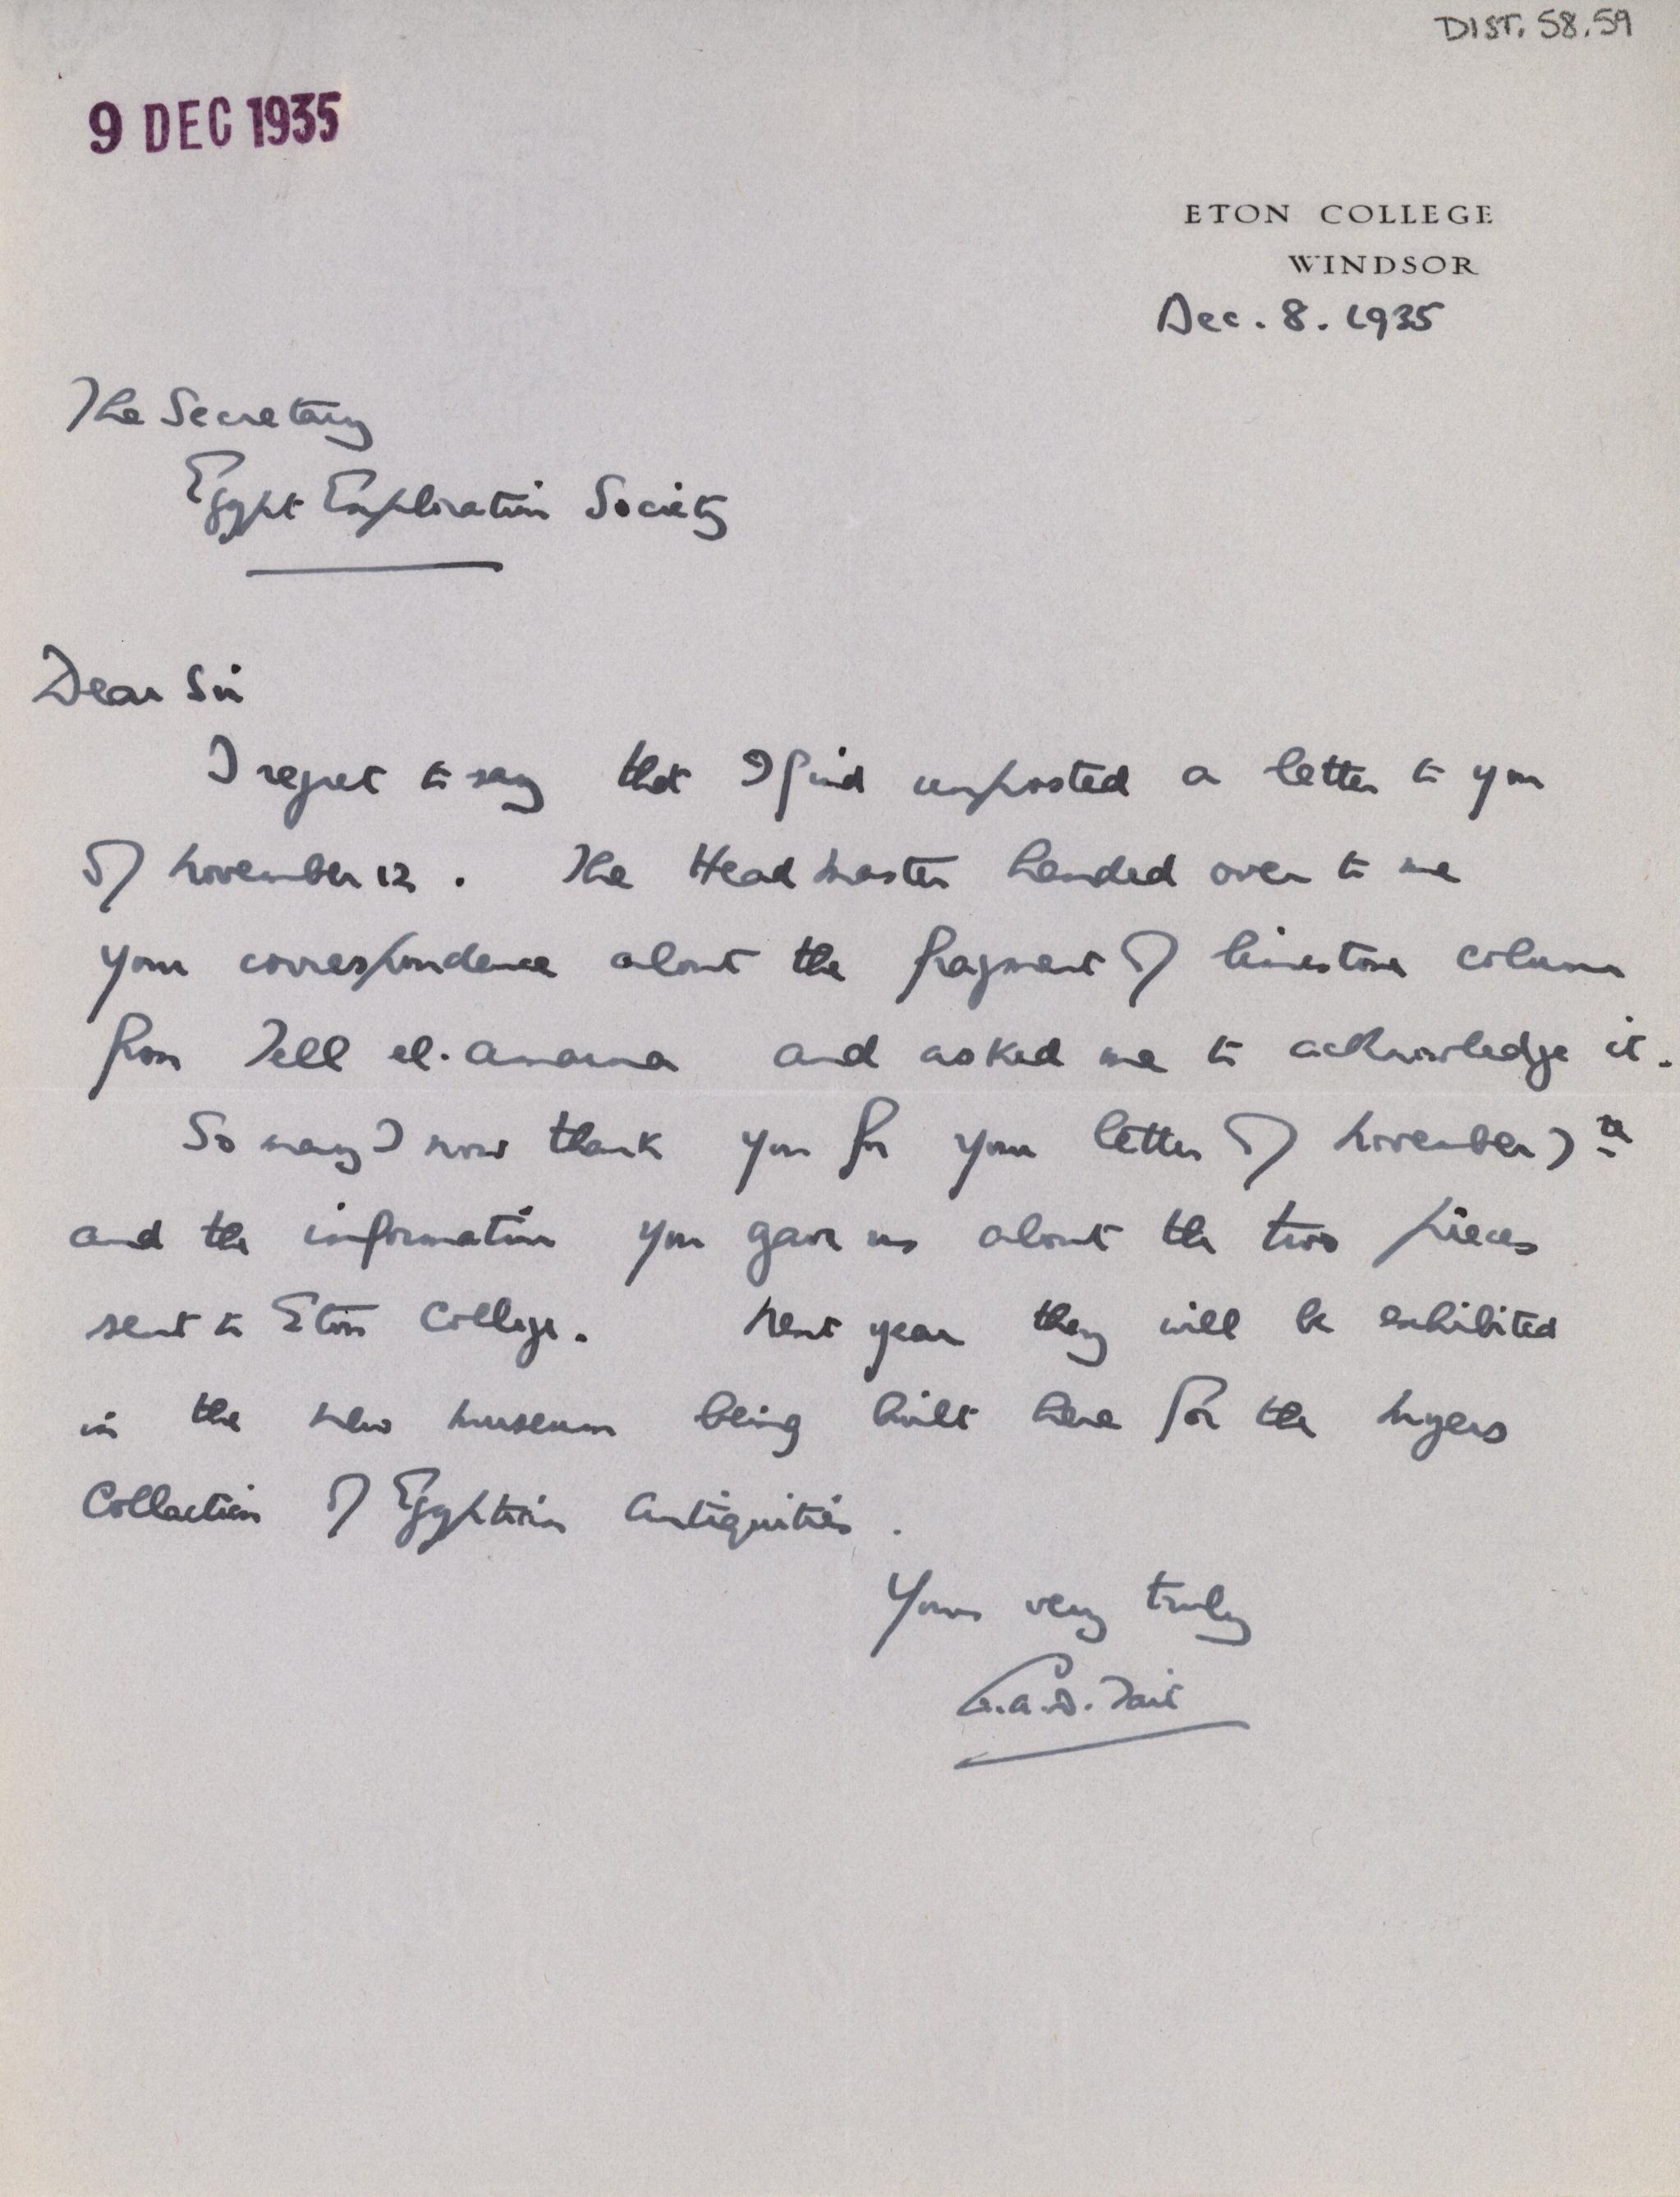 DIST. 58.59
9 DEC 1935
ETON COLLEGE
WINDSOR
Dec. 8. 1935
The Secretary
Egypt Exploration Society
Dear Sir
I regret to say that I find unposted a letter to you
of November 12. The Head Master handed over to me
your correspondence about the fragment of limestone column
from Tell el-Amarna and asked me to acknowledge it.
So may I now thank you for your letter of November 7th
and the information you gave us about the two pieces
sent to Eton College. Next year they will be exhibited
in the new museum being built here for the Myers
Collection of Egyptian Antiquities.
Yours very truly
G.A.D. Tait